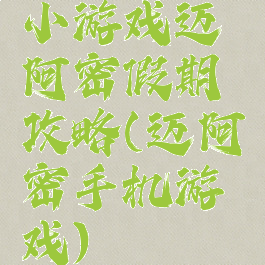 小游戏迈
阿密假期
攻略(迈阿
密手机游
戏)